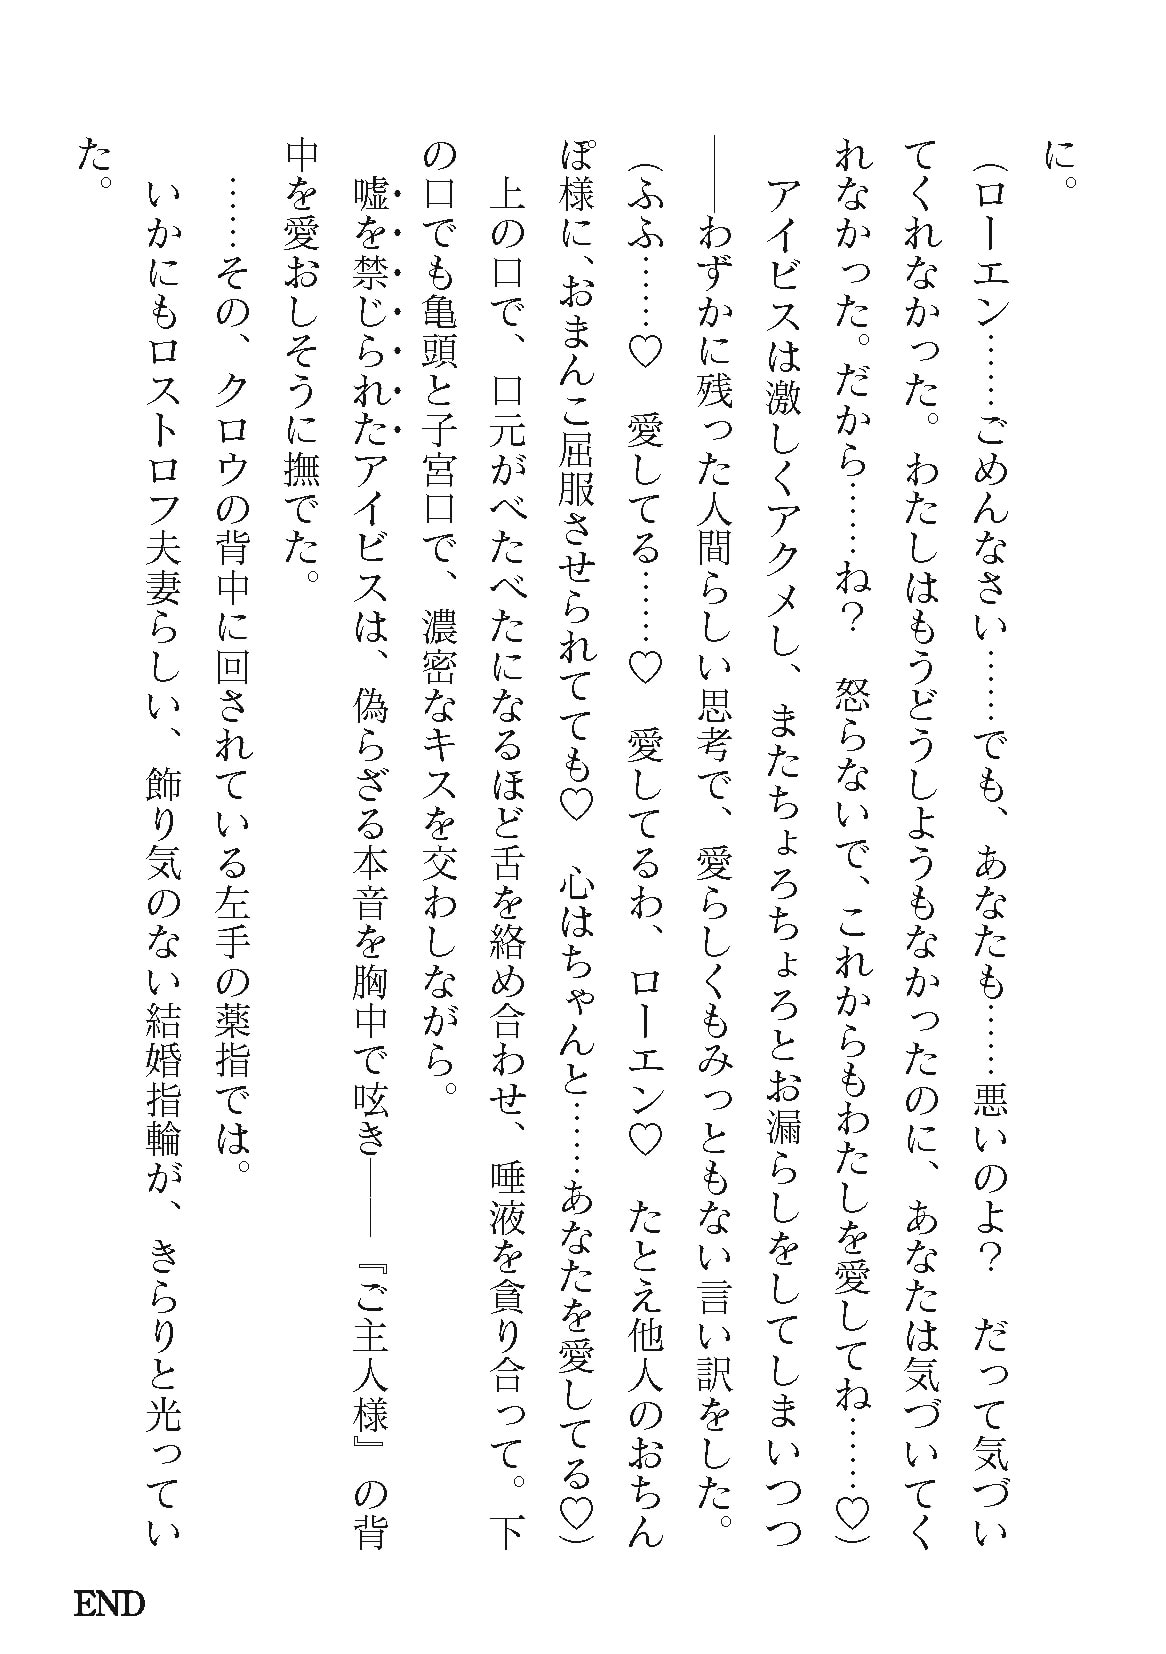 に。
（ローエン……ごめんなさい……でも、あなたも……悪いのよ？　だって気づい
てくれなかった。わたしはもうどうしようもなかったのに、あなたは気づいてく
れなかった。だから……ね？　怒らないで、これからもわたしを愛してね……♡）
　アイビスは激しくアクメし、またちょろちょろとお漏らしをしてしまいつつ
――わずかに残った人間らしい思考で、愛らしくもみっともない言い訳をした。
（ふふ……♡　愛してる……♡　愛してるわ、ローエン♡　たとえ他人のおちん
ぽ様に、おまんこ屈服させられてても♡　心はちゃんと……あなたを愛してる♡）
　上の口で、口元がべたべたになるほど舌を絡め合わせ、唾液を貪り合って。下
の口でも亀頭と子宮口で、濃密なキスを交わしながら。
　嘘を禁じられたアイビスは、偽らざる本音を胸中で呟き――『ご主人様』の背
中を愛おしそうに撫でた。
　……その、クロウの背中に回されている左手の薬指では。
　いかにもロストロフ夫妻らしい、飾り気のない結婚指輪が、きらりと光ってい
た。
END